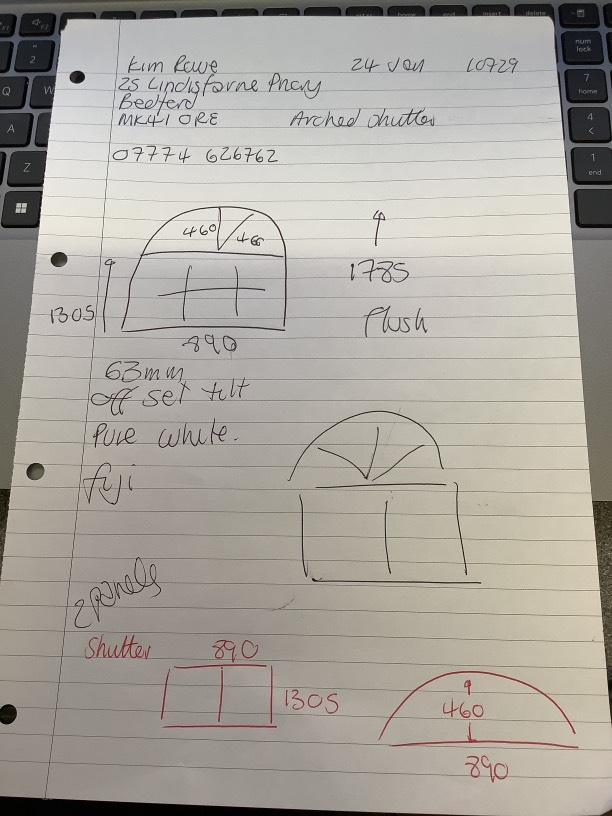 Kim Rowe 24 Jan 10729
25 Lindisfarne Priory
Bedford
MK41 0RE Arched shutter
07774 626762
460 460
1785
1305
Flush
890
63mm
off set tilt
Pure white.
fuji
2 panels
Shutter 890
1305
460
890